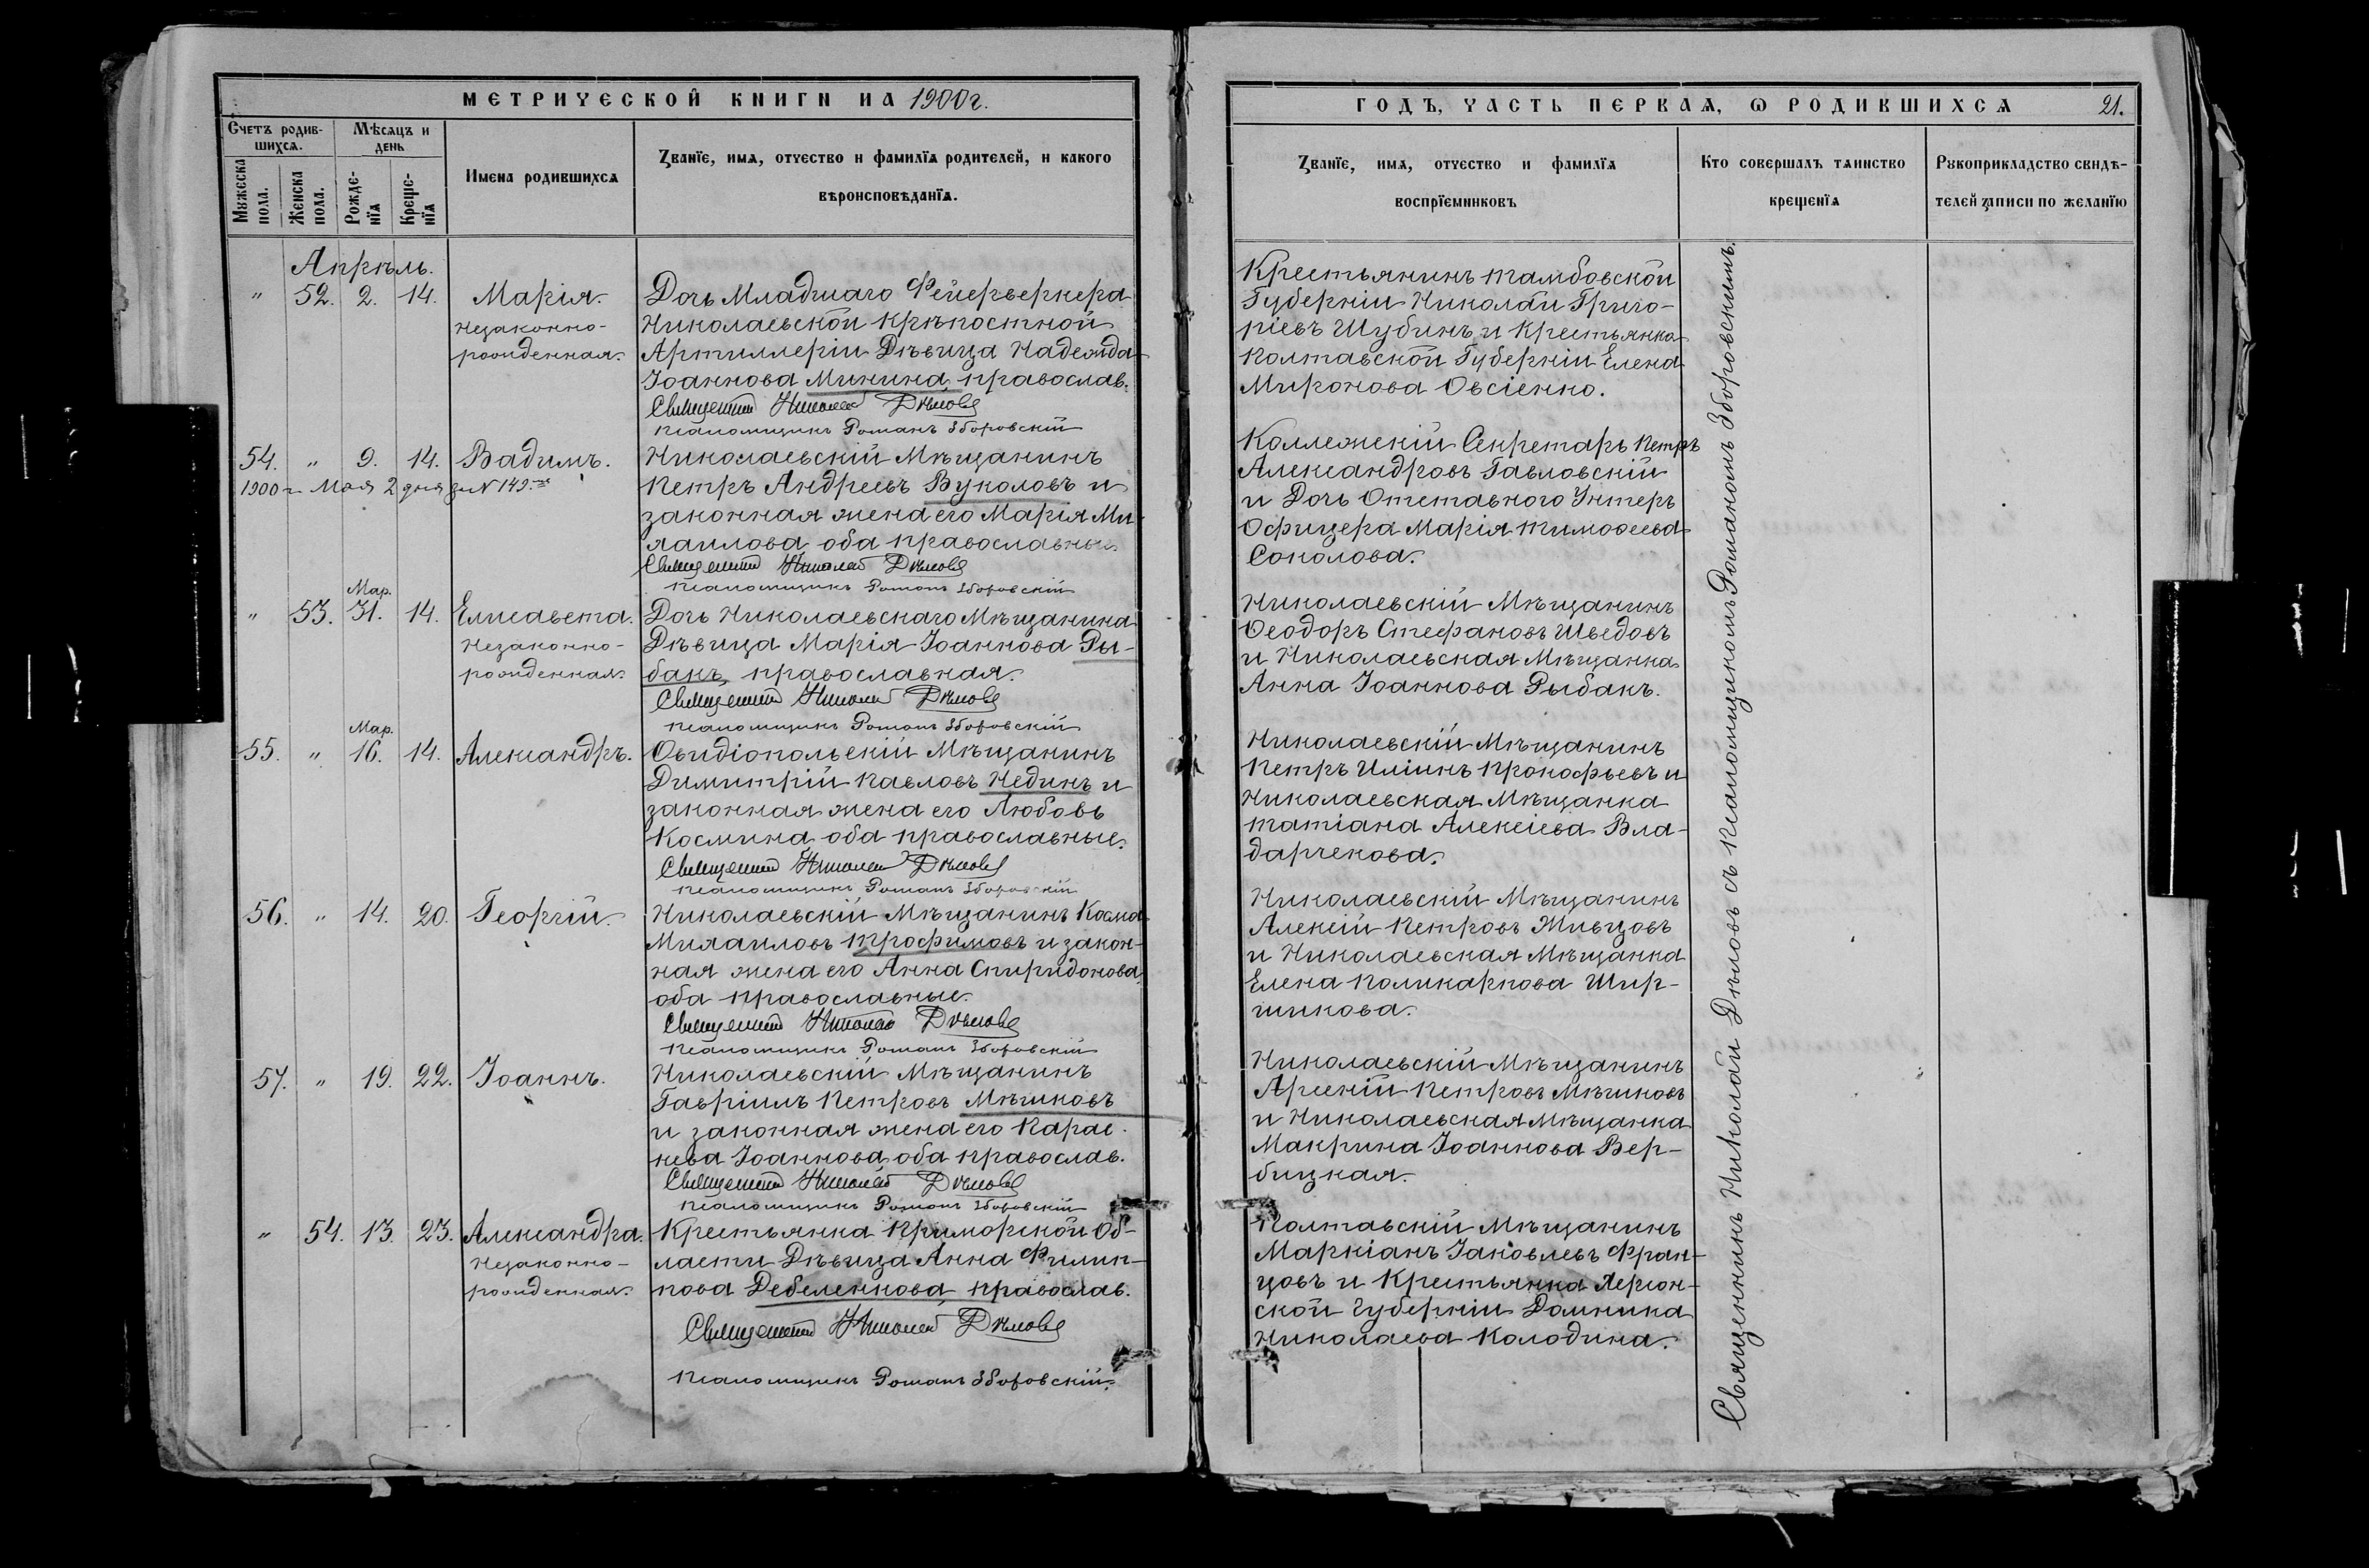 МЕТРИЧЕСКОЙ КНИГИ НА 1900 г.
Счетъ родив-
шихся.
Мѣсяцъ и
день
Мужеска
пола.
Женска
пола.
Рожде-
нїя
Креще-
нїя
Имена родившихся
Званїе, имя, отчество и фамилїя родителей, и какого
вѣроисповѣданїя.
Апрѣль.
" 52. 2. 14. Марія.
незаконно-
рожденная.
Дочь Младшаго Фейерверкера
Николаевской крѣпостной
Артиллеріи Дѣвица Надежда
Іоаннова Минина, православ.
Священникъ Николай Дѣловъ
Псаломщикъ Романъ Зборовскій
54. " 9. 14. Вадимъ.
1900 г. Мая 2 дня за № 149.
Николаевскій Мѣщанинъ
Петръ Андреевъ Вуколовъ и
законная жена его Марія Ми-
хаилова оба православные.
Священникъ Николай Дѣловъ
Псаломщикъ Романъ Зборовскій
Мар.
" 53. 31. 14. Елисавета.
незаконно-
рожденная.
Дочь Николаевскаго Мѣщанина
Дѣвица Марія Іоаннова Ры-
бакъ, православная.
Священникъ Николай Дѣловъ
Псаломщикъ Романъ Зборовскій
Мар.
55. " 16. 14. Александръ.
Овидіопольскій Мѣщанинъ
Димитрій Павловъ Нединъ и
законная жена его Любовь
Космина оба православные.
Священникъ Николай Дѣловъ
Псаломщикъ Романъ Зборовскій
56. " 14. 20. Георгій.
Николаевскій Мѣщанинъ Косма
Михаиловъ Трофимовъ и закон-
ная жена его Анна Спиридонова,
оба православные.
Священникъ Николай Дѣловъ
Псаломщикъ Романъ Зборовскій
57. " 19. 22. Іоаннъ.
Николаевскій Мѣщанинъ
Гавріилъ Петровъ Мѣшковъ
и законная жена его Парас-
кева Іоаннова, оба православ.
Священникъ Николай Дѣловъ
Псаломщикъ Романъ Зборовскій
" 54. 13. 23. Александра.
незаконно-
рожденная.
Крестьянка Приморской Об-
ласти Дѣвица Анна Филип-
пова Дебеленкова, православ.
Священникъ Николай Дѣловъ
Псаломщикъ Романъ Зборовскій.
ГОДЪ, ЧАСТЬ ПЕРВАЯ, Ѡ РОДИВШИХСЯ 21.
Званїе, имя, отчество и фамилїя
воспрїемниковъ
Кто совершалъ таинство
крещенїя
Рукоприкладство свидѣ-
телей записи по желанїю
Крестьянинъ Тамбовской
Губерніи Николай Григо-
ріевъ Шубинъ и Крестьянка
Полтавской Губерніи Елена
Миронова Овсіенко.
Коллежскій Секретарь Петръ
Александровъ Павловскій
и Дочь Отставного Унтеръ
Офицера Марія Тимофеева
Соколова.
Николаевскій Мѣщанинъ
Ѳеодоръ Стефановъ Шведовъ
и Николаевская Мѣщанка
Анна Іоаннова Рыбакъ.
Николаевскій Мѣщанинъ
Петръ Иліинъ Прокофьевъ и
Николаевская Мѣщанка
Татіана Алексіева Вла-
дарчекова.
Николаевскій Мѣщанинъ
Алексій Петровъ Живцовъ
и Николаевская Мѣщанка
Елена Поликарпова Шир-
шикова.
Николаевскій Мѣщанинъ
Арсеній Петровъ Мѣшковъ
и Николаевская Мѣщанка
Макрина Іоаннова Вер-
бицкая.
Полтавскій Мѣщанинъ
Маркіанъ Іаковлевъ Фран-
цовъ и Крестьянка Херсон-
ской губерніи Домника
Николаева Колодина.
Священникъ Николай Дѣловъ съ псаломщикомъ Романомъ Зборовскимъ.